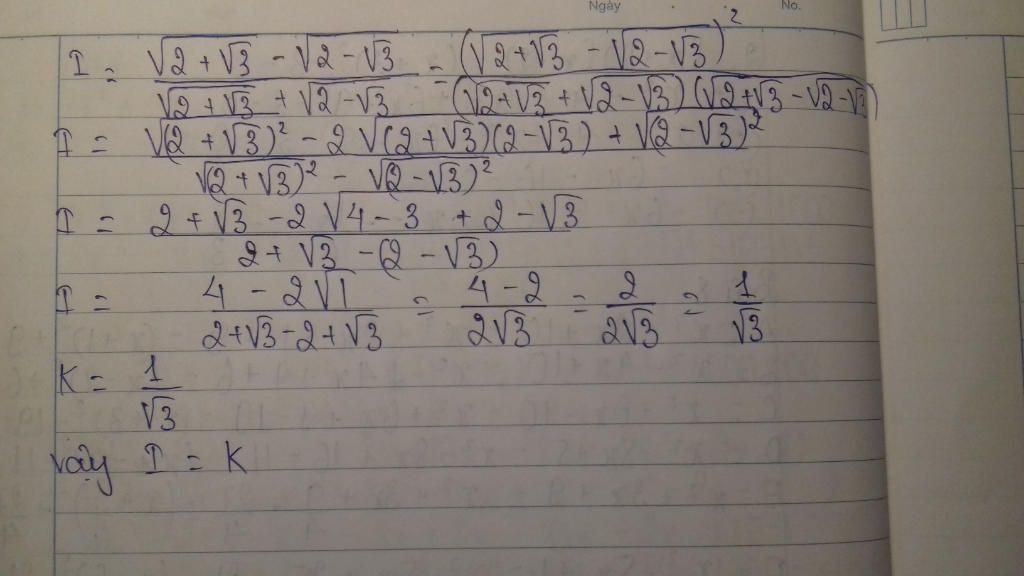 Ngày No.
I = (√(2 + √3) - √(2 - √3))/(√(2 + √3) + √(2 - √3)) = (√(2+√3) - √(2-√3))²/((√(2+√3) + √(2-√3))(√(2+√3) - √(2-√3)))
I = (√(2 + √3)² - 2√(2+√3)(2-√3) + √(2-√3)²)/(√(2+√3)² - √(2-√3)²)
I = (2 + √3 - 2√(4-3) + 2 - √3)/(2 + √3 - (2 - √3))
I = (4 - 2√1)/(2+√3-2+√3) = (4-2)/(2√3) = 2/(2√3) = 1/√3
K = 1/√3
vậy I = K